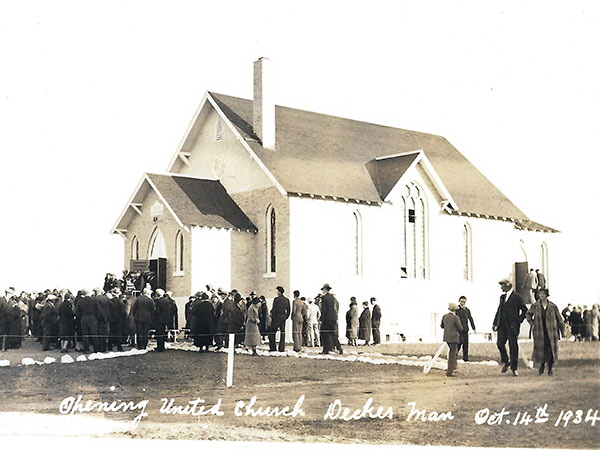 Opening United Church Decker Man Oct. 14th 1934